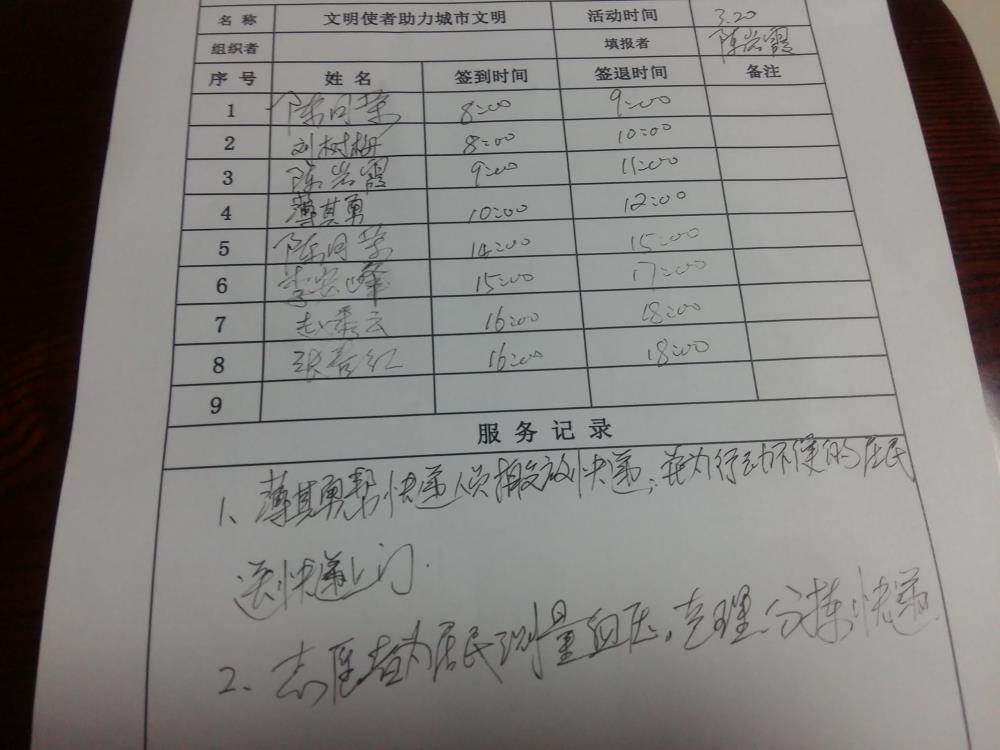 名称 文明使者助力城市文明 活动时间 3.20
组织者 填报者 陈岩霞
序号 姓名 签到时间 签退时间 备注
1 陈同荣 8:00 9:00
2 刘树梅 8:00 10:00
3 陈岩霞 9:00 11:00
4 薄其勇 10:00 12:00
5 陈同荣 14:00 15:00
6 李宏峰 15:00 17:00
7 赵秀云 16:00 18:00
8 张春红 16:00 18:00
9
服务记录
1、薄其勇帮快递员发放快递,并为行动不便的居民
送快递上门.
2、志愿者为居民测量血压,整理分拣快递